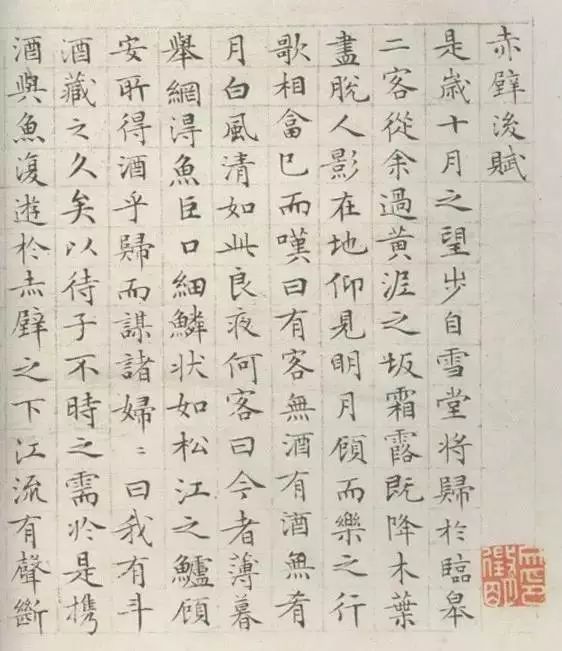 赤壁後賦
是歲十月之望步自雪堂将歸於臨皋
二客從余過黃泥之坂霜露既降木葉
盡脫人影在地仰見明月顧而樂之行
歌相畣已而嘆曰有客無酒有酒無肴
月白風清如此良夜何客曰今者薄暮
舉網得魚巨口細鱗狀如松江之鱸顧
安所得酒乎歸而謀諸婦〻曰我有斗
酒藏之久矣以待子不時之需於是携
酒與魚復遊於赤壁之下江流有聲斷